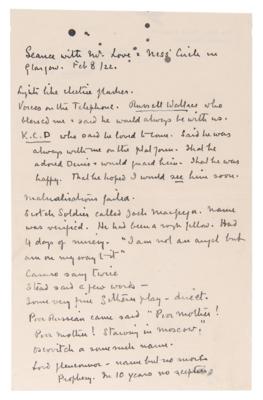 Seance with Mr Love & Ness' Circle in
Glasgow. Feb 8/22.
Lights like electric flashes.
Voices on the Telephone. Russell Wallace who
blessed me & said he would always be with us.
K.C.D who said he loved to come. Said he was
always with me on the platform. That he
adored Denis & would guard him. That he was
happy. That he hoped I would see him soon.
Materialisations failed.
Scotch Soldier called Jack Macgregor. Name
was verified. He had been a rough fellow. Had
4 days of misery. "I am not an angel but
am on my way to it"
Caruso sang twice
Stead said a few words –
Some very fine Zither play – direct.
Poor Russian came said "Poor Mother!
Poor Mother! Starving in Moscow."
or some such name.
Lord Glenconnor – name but no
Prophecy. In 10 years no sceptics